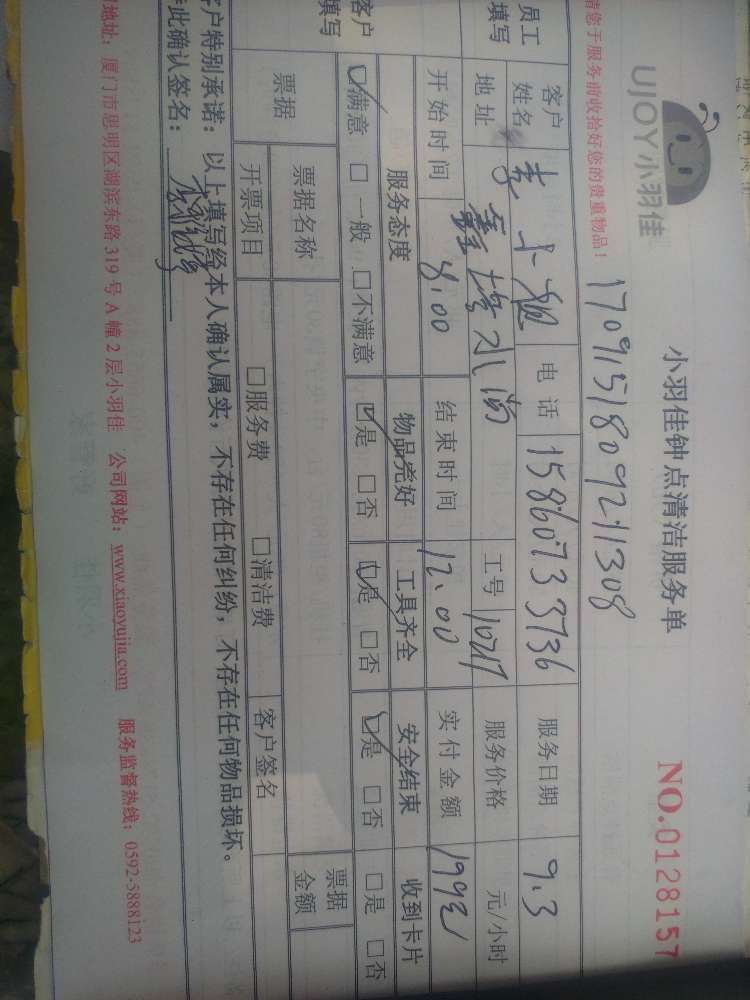 UJOY小羽佳
小羽佳钟点清洁服务单
NO.0128157
请您于服务前收拾好您的贵重物品！
170915180921308
员工填写
客户姓名 李小姐 电话 15860733736 服务日期 9.3
地址 工号 10217 服务价格 元/小时
开始时间 8.00 结束时间 12.00 实付金额 199元
客户填写
服务态度 物品完好 工具齐全 安全结束 收到卡片
☑满意 □一般 □不满意 ☑是 □否 ☑是 □否 ☑是 □否 □是 □否
票据 票据名称 票据金额
开票项目 □服务费 □清洁费 客户签名
客户特别承诺：以上填写经本人确认属实，不存在任何纠纷，不存在任何物品损坏。
此确认签名：
地址：厦门市思明区湖滨东路319号A幢2层小羽佳 公司网站：www.xiaoyujia.com 服务监督热线：0592-5888123